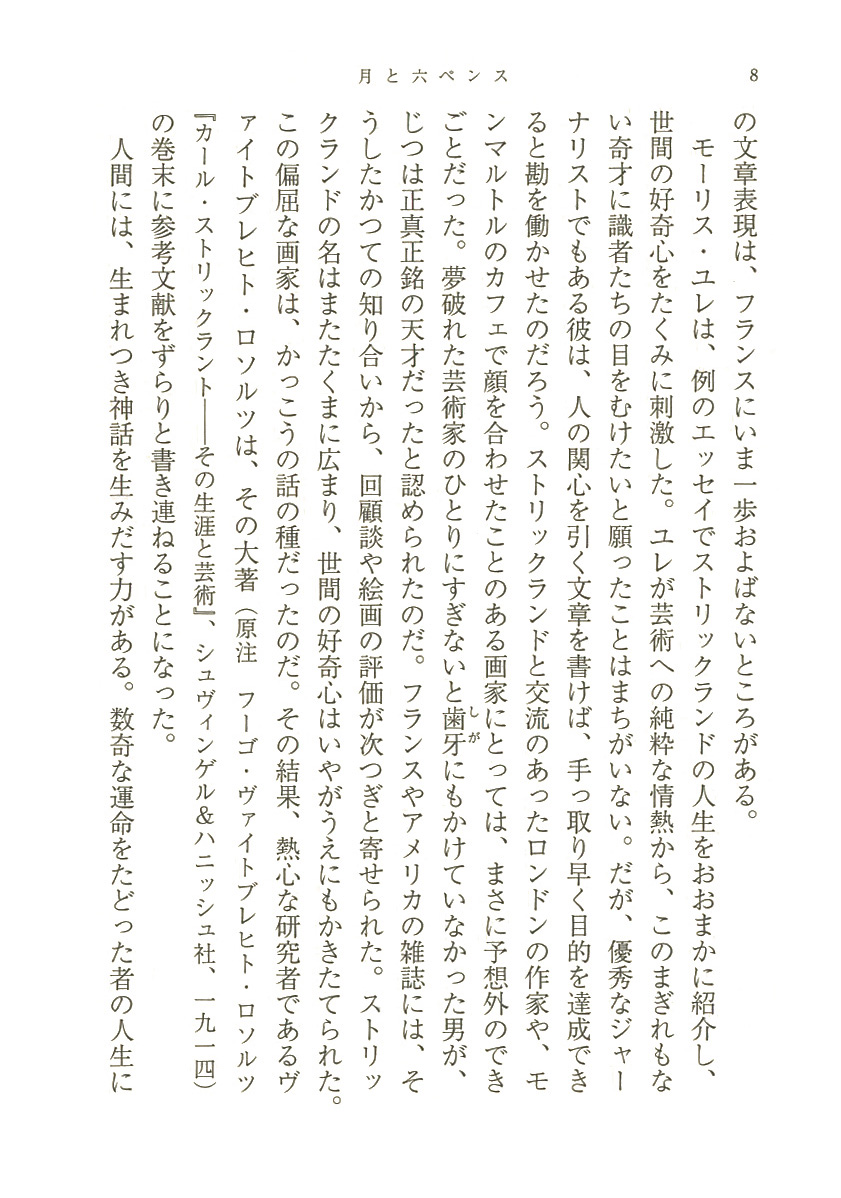 月と六ペンス
8
の文章表現は、フランスにいま一歩およばないところがある。
モーリス・ユレは、例のエッセイでストリックランドの人生をおおまかに紹介し、
世間の好奇心をたくみに刺激した。ユレが芸術への純粋な情熱から、このまぎれもな
い奇才に識者たちの目をむけたいと願ったことはまちがいない。だが、優秀なジャー
ナリストでもある彼は、人の関心を引く文章を書けば、手っ取り早く目的を達成でき
ると勘を働かせたのだろう。ストリックランドと交流のあったロンドンの作家や、モ
ンマルトルのカフェで顔を合わせたことのある画家にとっては、まさに予想外のでき
ごとだった。夢破れた芸術家のひとりにすぎないと歯牙にもかけていなかった男が、
しが
じつは正真正銘の天才だったと認められたのだ。フランスやアメリカの雑誌には、そ
うしたかつての知り合いから、回顧談や絵画の評価が次つぎと寄せられた。ストリッ
クランドの名はまたたくまに広まり、世間の好奇心はいやがうえにもかきたてられた。
この偏屈な画家は、かっこうの話の種だったのだ。その結果、熱心な研究者であるヴ
ァイトブレヒト・ロソルツは、その大著（原注　フーゴ・ヴァイトブレヒト・ロソルツ
『カール・ストリックラント――その生涯と芸術』、シュヴィンゲル＆ハニッシュ社、一九一四）
の巻末に参考文献をずらりと書き連ねることになった。
人間には、生まれつき神話を生みだす力がある。数奇な運命をたどった者の人生に